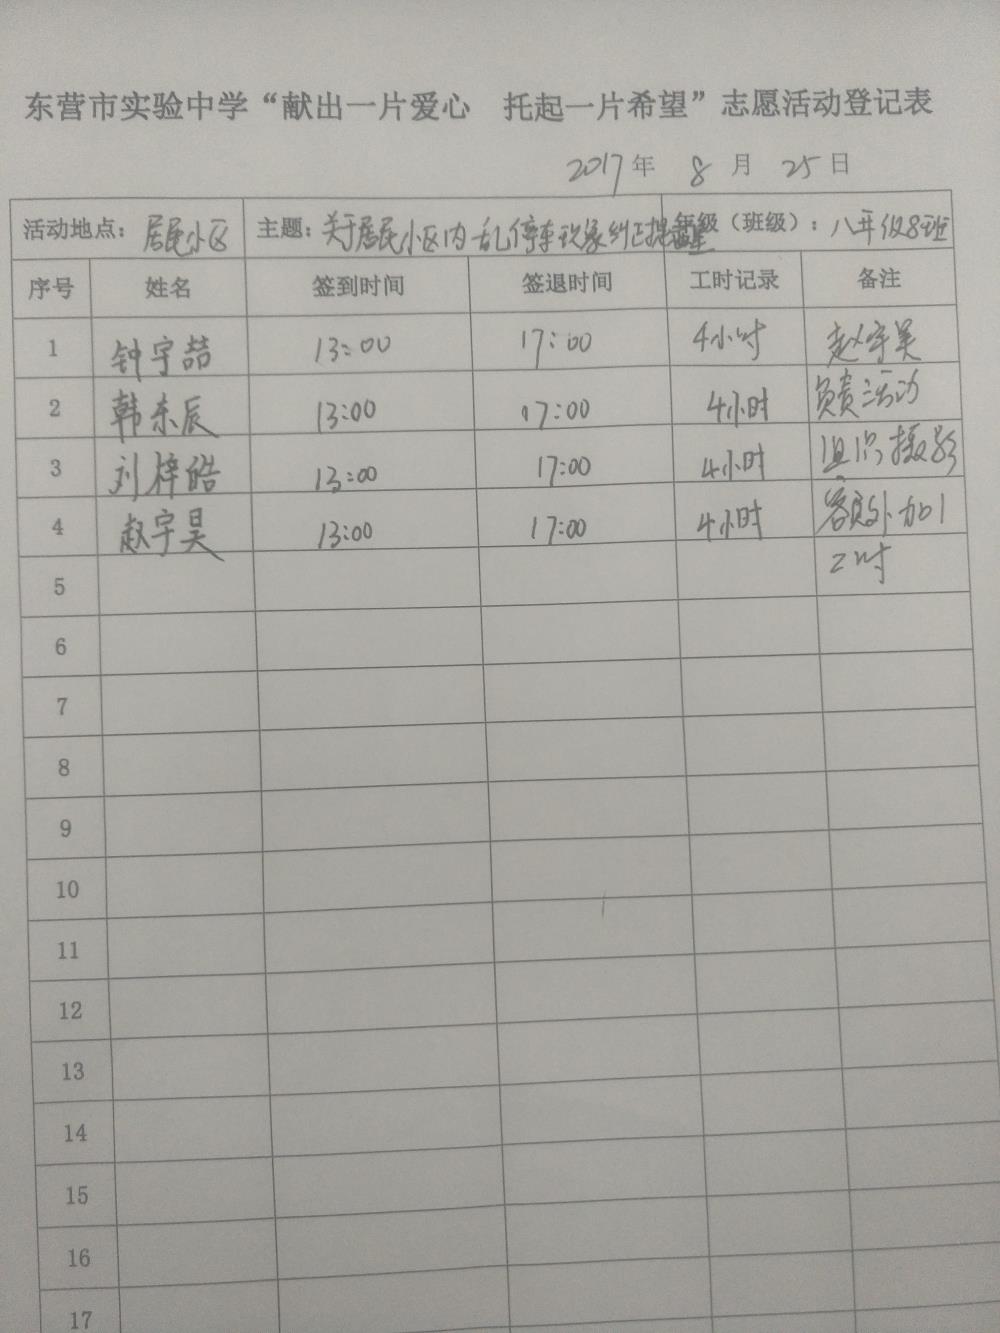 东营市实验中学“献出一片爱心 托起一片希望”志愿活动登记表
2017年 8 月 25 日
活动地点：居民小区 主题：关于居民小区内乱停车现象纠正提醒 年级（班级）：八年级8班
序号 姓名 签到时间 签退时间 工时记录 备注
1 钟宇喆 13:00 17:00 4小时 赵宇昊
2 韩东辰 13:00 17:00 4小时 负责活动
3 刘梓皓 13:00 17:00 4小时 组织,摄影
4 赵宇昊 13:00 17:00 4小时 额外加1
5 工时
6
7
8
9
10
11
12
13
14
15
16
17